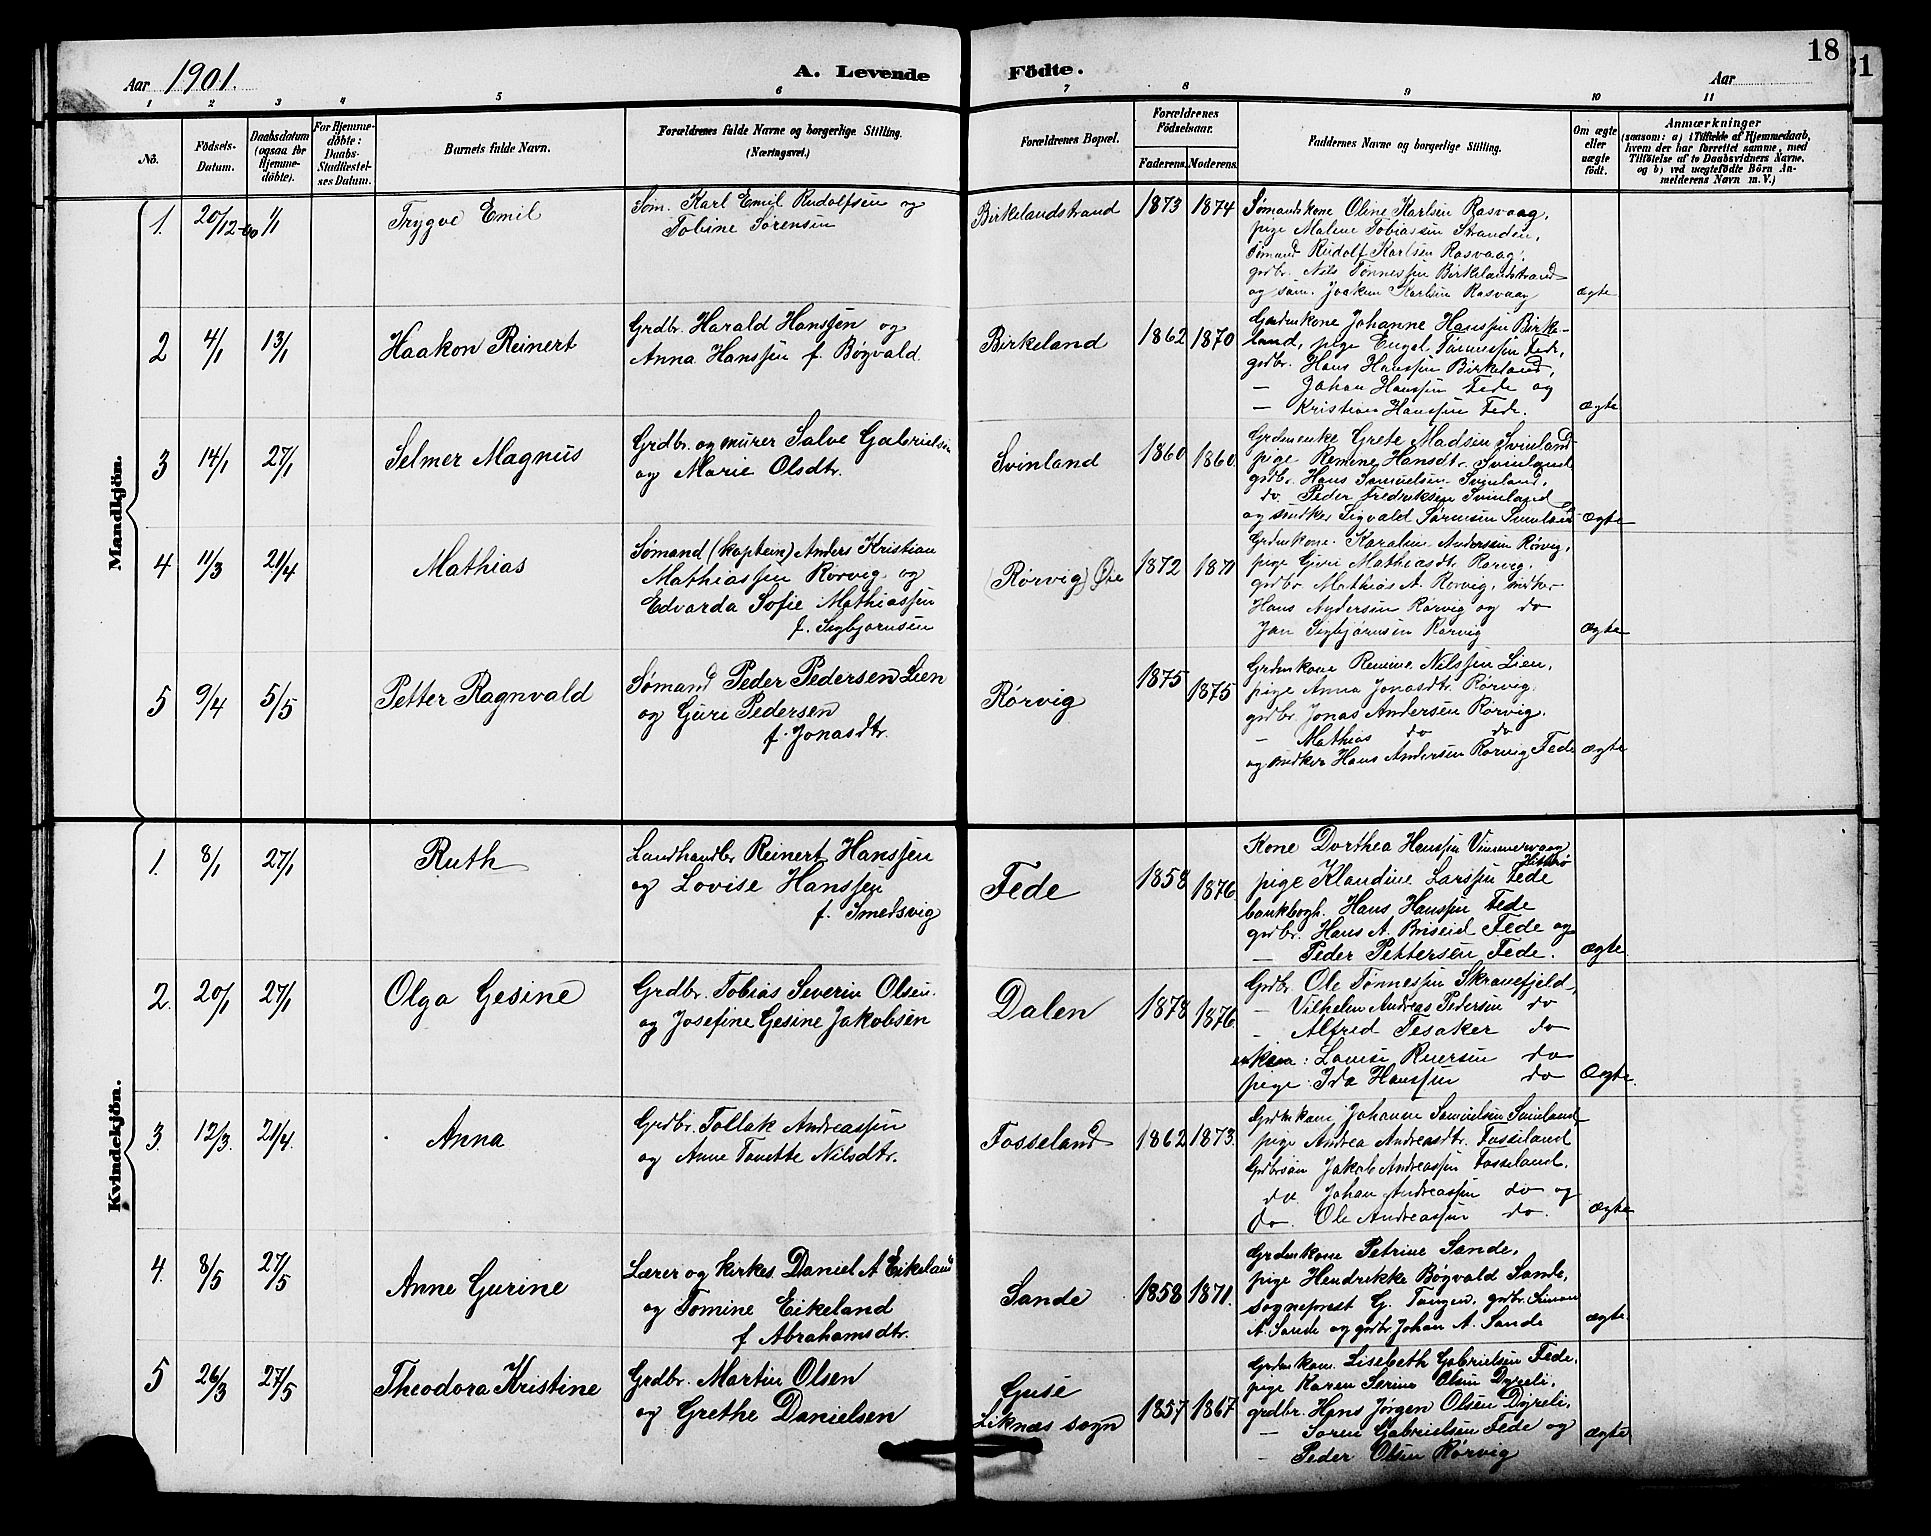 Aar 1901.
A. Levende Födte.
Aar
18
31
1 2 3 4 5 6 7 8 9 10 11
No.
Födsels-
Datum.
Daabsdatum
(ogsaa for
Hjemme-
döbte).
For Hjemme-
döbte:
Daabs-
Stadfæstel-
ses Datum.
Barnets fulde Navn.
Forældrenes fulde Navne og borgerlige Stilling.
(Næringsvei.)
Forældrenes Bopæl.
Forældrenes
Födselsaar.
Faderens. Moderens.
Faddernes Navne og borgerlige Stilling.
Om ægte
eller
uægte
födt.
Anmærkninger
(saasom: a) i Tilfælde af Hjemmedaab,
hvem der har forrettet samme, med
Tilföielse af to Daabsvidners Navne,
og b) ved uægtefödte Börn An-
melderens Navn m. V.)
Mandkjön.
1. 20/12-00 1/1 Trygve Emil
Søm. Karl Emil Rudolfsen og
Tobine Sørensen
Birkelandstrand 1873 1874
Sømandskone Oline Karlsen Rasvaag,
pige Malene Tobiassen Stranden,
sømand Rudolf Karlsen Rasvaag,
grdbr. Nils Tønnessen Birkelandstrand
og søm. Joakim Karlsen Rasvaag
ægte
2 4/1 13/1 Haakon Reinert
Grdbr. Harald Hanssen og
Anna Hanssen f. Bøgvald.
Birkeland 1862 1870
Grdmkone Johanne Hanssen Birke-
land, pige Engel Tønnessen Fede,
grdbr. Hans Hanssen Birkeland,
— Johan Hanssen Fede og
— Kristian Hanssen Fede.
ægte
3 14/1 27/1 Selmer Magnus
Grdbr. og murer Salve Gabrielsen
og Marie Olsdtr.
Svinland 1860 1860.
Grdmenke Grete Madsen Svinland
pige Remine Hansdtr. Svinland
grdbr. Hans Samuelsen Svinland,
do. Peder Fredriksen Svinland
og snedker Sigvald Sørensen Svinland
ægte
4 11/3 21/4 Mathias
Sømand (kaptein) Anders Kristian
Mathiassen Rørvig og
Edvarda Sofie Mathiassen
f. Sigbjørnsen
(Rørvig) Øie 1872 1871
Grdmkone Karoline Andersen Rørvig,
pige Guri Mathiasdtr. Rørvig,
grdbr. Mathias A. Rørvig, snedker
Hans Andersen Rørvig og do
Jan Sigbjørnsen Rørvig
ægte
5 9/4 5/5 Petter Ragnvald
Sømand Peder Pedersen Lien
og Guri Pedersen
f. Jonasdtr.
Rørvig 1875 1875
Grdmkone Remine Nilssen Lien,
pige Anna Jonasdtr. Rørvig.
grdbr. Jonas Andersen Rørvig.
— Mathias do do
og snedker Hans Andersen Rørvig Fede
ægte
Kvindekjön.
1. 8/1 27/1 Ruth
Landhandlr Reinert Hanssen
og Lovise Hanssen
f. Smedsvig
Fede 1858 1876
Kone Dorthea Hanssen
Hitterø
pige Klandine Larssen Fede
bankbogh. Hans Hanssen Fede
grdbr. Hans A. Briseid Fede og
— Peder Pettersen Fede.
ægte
2. 20/1 27/1 Olga Gesine
Grdbr. Tobias Severin Olsen
og Josefine Gesine Jakobsen
Dalen 1878 1876.
Grdbr. Ole Tønnessen Skranefjeld,
— Vilhelm Andreas Pedersen do
— Alfred Tesaker do
Lovise do
pige Ida Hanssen do
Ægte.
3. 12/3. 21/4. Anna
Grdbr. Tollak Andreassen
og Anne Tonette Nilsdtr.
Fosseland 1862 1873.
Grdmkone Johanne Samuelsen Svinland
pige Andrea Andreasdtr. Fosseland
Grdbrsøn Jakob Andreassen Fosseland,
do. Johan Andreassen do og
do. Ole Andreassen do.
ægte
4. 8/5 27/5 Anne Gurine
Lærer og kirkes. Daniel A Eikeland
og Tomine Eikeland
f. Abrahamsdtr.
Sande 1858 1871.
Grdmkone Petrine Sande,
pige Hendrikke Bøgvald Sande,
sogneprest G. Tangen, grdbr. Simon
A. Sande og grdbr. Johan A. Sande
ægte.
5 26/3 27/5 Theodora Kristine
Grdbr. Martin Olsen
og Grethe Danielsen
Guse
Liknæs sogn 1857 1867
Grdmkone Lisebeth Gabrielsen Fede,
pige Karen Serine Olsen Dyreli,
grdbr. Hans Jørgen Olsen Dyreli,
— Søren Gabrielsen Fede og
— Peder Olsen Rørvig
ægte